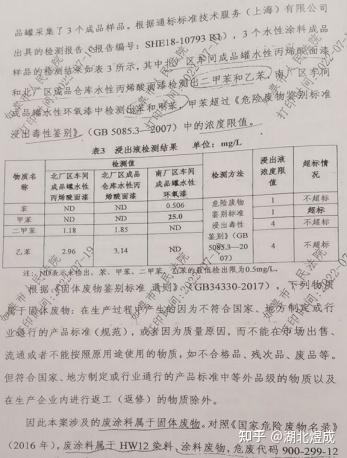 品罐采集了 3 个成品样品。根据通标标准技术服务（上海）有限公司
出具的检测报告（报告编号：SHE18-10793 R1），3 个水性涂料成品
样品的检测结果如表 3 所示，其中北厂区车间成品罐水性丙烯酸面漆
和北厂区成品仓库水性丙烯酸面漆检测出二甲苯和乙苯，南厂区车间
成品罐水性环氧漆中检测出苯和甲苯，甲苯超过《危险废物鉴别标准
浸出毒性鉴别》（GB 5085.3—2007）中的浓度限值。
表3 浸出液检测结果 单位：mg/L
物质名称 检测值 检测方法 浸出液浓度限值 超标情况
北厂区车间成品罐水性丙烯酸面漆 北厂区成品仓库水性丙烯酸面漆 南厂区车间成品罐水性环氧漆
苯 ND ND 0.506 危险废物鉴别标准浸出毒性鉴别》（GB 5085.3—2007） 1 不超标
甲苯 ND ND 25.0 1 超标
二甲苯 1.18 1.85 ND 4 不超标
乙苯 2.96 3.14 ND 4 不超标
注：ND表示未检出，苯、甲苯、二甲苯、乙苯的最低检出限为0.5mg/L。
根据《固体废物鉴别标准 通则》（GB34330-2017），下列物质
属于固体废物：在生产过程中产生的因为不符合国家、地方制定或行
业通行的产品标准（规范），或者因为质量原因，而不能在市场出售、
流通或者不能按照原用途使用的物质，如不合格品、残次品、废品等，
但符合国家、地方制定或行业通行的产品标准中等外品级的物质以及
在生产企业内进行返工（返修）的物质除外。
因此本案涉及的废涂料属于固体废物。对照《国家危险废物名录》
（2016 年），废涂料属于 HW12 染料、涂料废物，危废代码 900-299-12
知乎 @湖北煜成